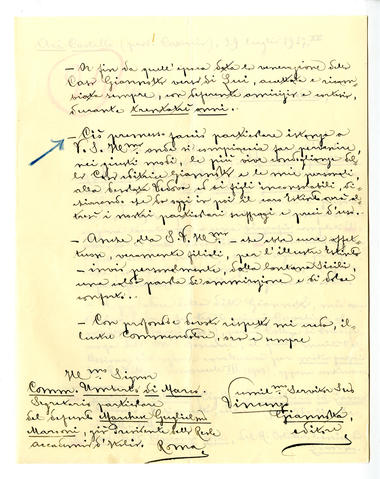 Aci Castello (prov. Catania), 29 luglio 1937 XV
— E fin da quell'epoca data la venerazione della
Casa Giannotta verso di Lui, accettata e ricam-
biata sempre, con deferente amicizia e
durante trentatré anni.
— Ciò premesso faccio particolare istanza a
V. S. Ill.ma onde si compiaccia far pervenire,
nei giusti modi, le più vive condoglianze del-
la Casa editrice Giannotta e le mie personali,
alla desolata Vedova ed ai figli inconsolabili,
che da oggi in poi il caro Estinto avrà al-
tresì i nostri particolari suffragi e preci d'uso.
— Anche alla S. V. Ill.ma che ebbe cure affet-
tuose, veramente filiali, per l'illustre Estinto
— invio personalmente, dalla lontana Sicilia,
una calda parola di ammirazione e di dolce
conforto.
— Con profondo devoto rispetto mi creda, il-
lustre Commendatore, ora e sempre
Ill.mo Signor
Comm. Umberto Di Marco.
Segretario particolare
del defunto Marchese Guglielmo
Marconi, già Presidente della Reale
Accademia d'Italia.
Roma
umil.mo Servitor Suo
Vincenzo
Giannotta
editore